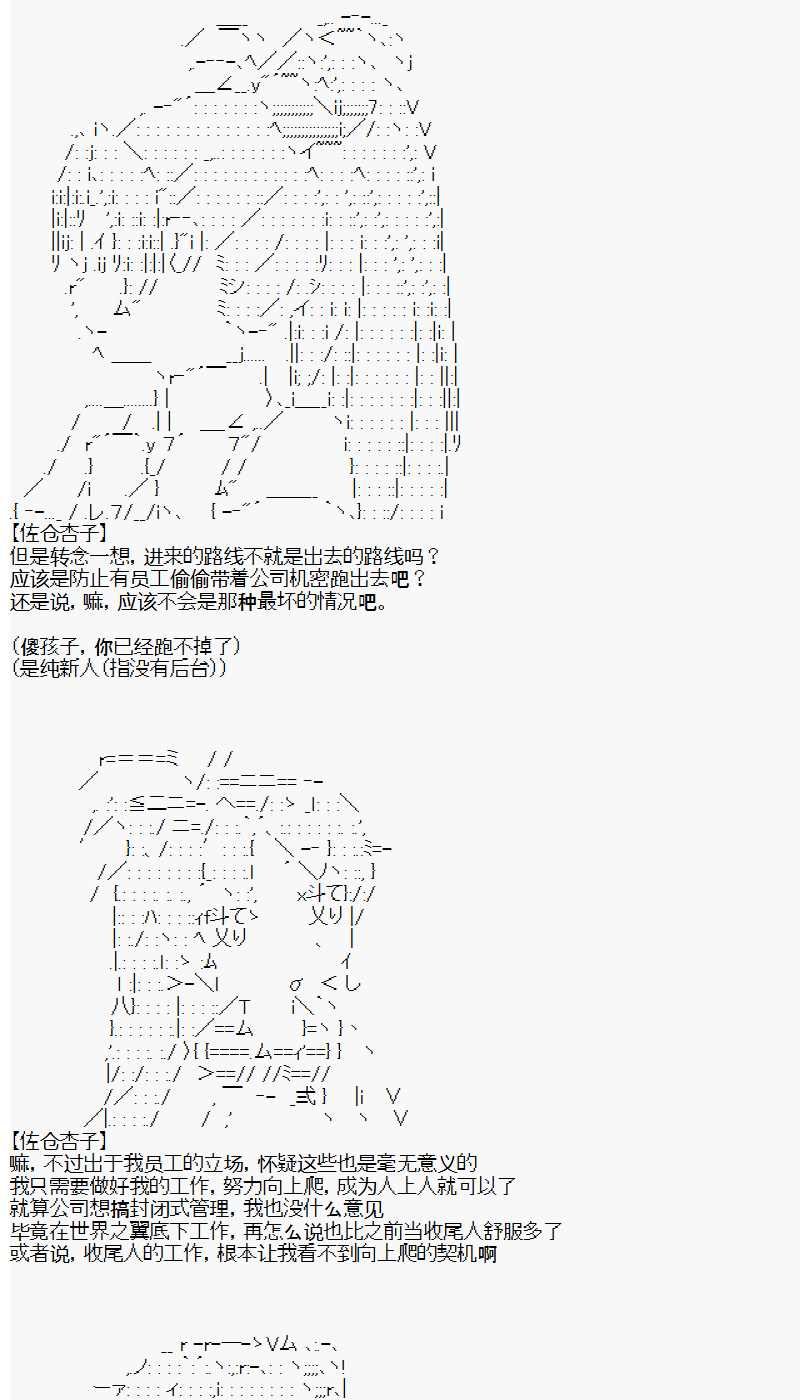 【佐仓杏子】
但是转念一想，进来的路线不就是出去的路线吗？
应该是防止有员工偷偷带着公司机密跑出去吧？
还是说，嘛，应该不会是那种最坏的情况吧。
（傻孩子，你已经跑不掉了）
（是纯新人（指没有后台））
【佐仓杏子】
嘛，不过出于我员工的立场，怀疑这些也是毫无意义的
我只需要做好我的工作，努力向上爬，成为人上人就可以了
就算公司想搞封闭式管理，我也没什么意见
毕竟在世界之翼底下工作，再怎么说也比之前当收尾人舒服多了
或者说，收尾人的工作，根本让我看不到向上爬的契机啊